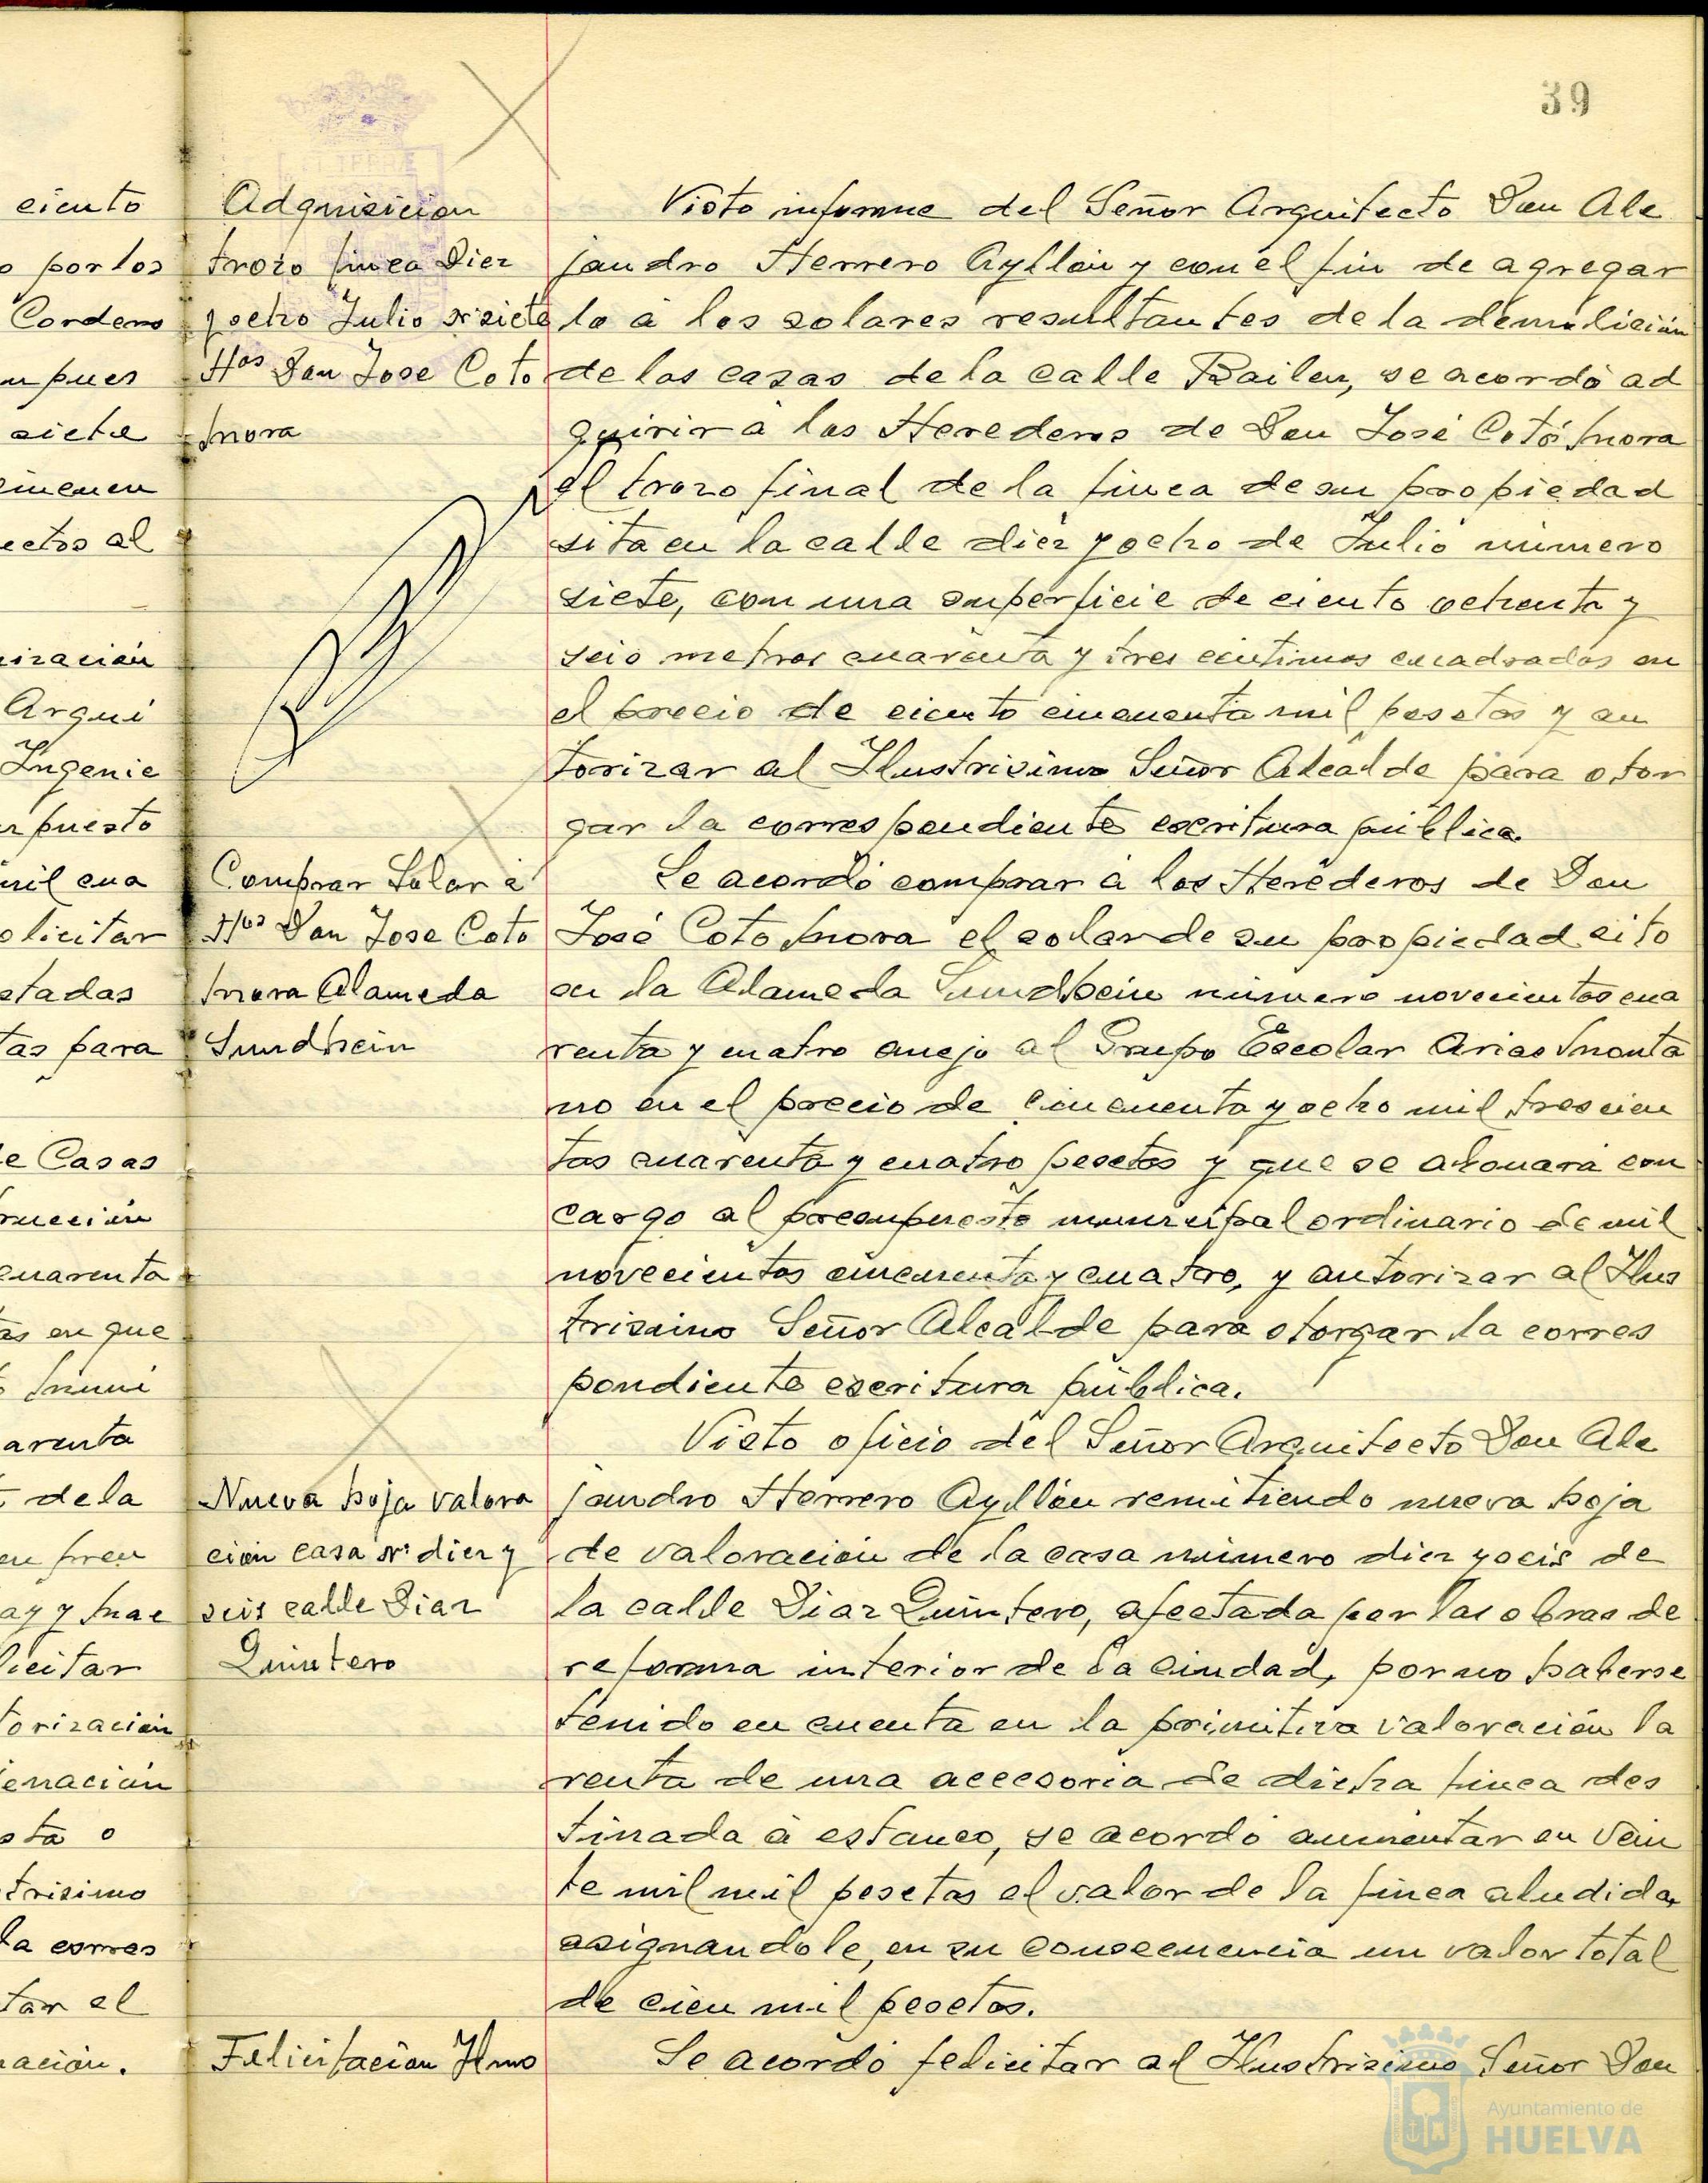 39
ciento
o por los
Cordero
n pues
siete
cincuen
ectos al
nización
Arqui
Ingenie
puesto
mil cua
olicitar
etadas
tas para
e Casas
rucción
cuarenta
as en que
Muni
arenta
de la
en pren
ay y Mae
licitar
torización
enación
sta o
trisimo
la corres
tar el
ración.
Adquisicion
trozo finca Diez
y ocho Julio nº siete
Hos Don Jose Coto
Mora
Comprar Solar á
Hos Don Jose Coto
Mora Alameda
Sundhein
Nueva hoja valora
ción casa nº diez y
seis calle Diaz
Quintero
Felicitacion Ilmo
Visto informe del Señor Arquitecto Don Ale
jandro Herrero Ayllón y con el fin de agregar
lo a los solares resultantes de la demolición
de las casas de la calle Bailen, se acordó ad
quirir a los Herederos de Don José Cotó Mora
el trozo final de la finca de su propiedad
sita en la calle diez y ocho de Julio número
siete, con una superficie de ciento ochenta y
seis metros cuarenta y tres centimos cuadrados en
el precio de ciento cincuenta mil pesetas y au
torizar al Ilustrisimo Señor Alcalde para otor
gar la correspondiente escritura pública.
Se acordó comprar á los Herederos de Don
José Coto Mora el solar de su propiedad sito
en la Alameda Sundhein número novecientos cua
renta y cuatro anejo al Grupo Escolar Arias Monta
no en el precio de cincuenta y ocho mil trescien
tas cuarenta y cuatro pesetas y que se abonará con
cargo al presupuesto municipal ordinario de mil
novecientos cincuenta y cuatro, y autorizar al Ilus
trisimo Señor Alcalde para otorgar la corres
pondiente escritura pública.
Visto oficio del Señor Arquitecto Don Ale
jandro Herrero Ayllón remitiendo nueva hoja
de valoración de la casa número diez y seis de
la calle Diaz Quintero, afectada por las obras de
reforma interior de la Ciudad, por no haberse
tenido en cuenta en la primitiva valoración la
renta de una accesoria de dicha finca des
tinada á estanco, se acordó aumentar en vein
te mil mil pesetas el valor de la finca aludida,
asignandole, en su consecuencia un valor total
de cien mil pesetas.
Se acordó felicitar al Ilustrisimo Señor Don
Ayuntamiento de
HUELVA